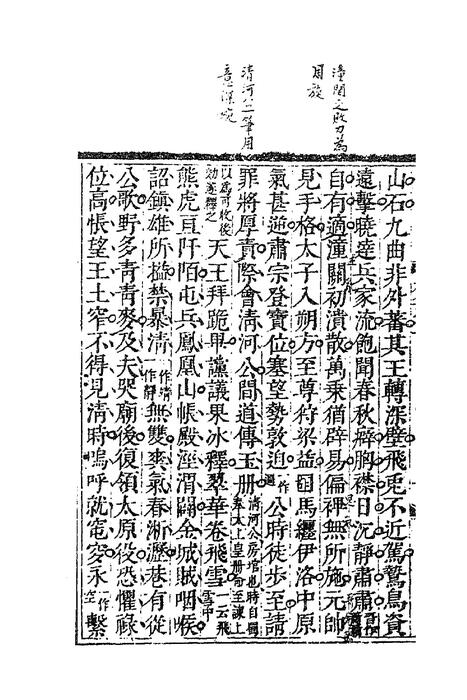 潼関之敗
清河公一筆用
意深婉
山石九曲非外蕃其王轉深壁飛兎不近駕鷙鳥資
遠擊曉達兵家流飽聞春秋癖胸襟日沉靜肅肅
自有適潼關初潰散萬乘猶辟易偏裨無所施元帥
見手格太子入朔方至尊狩梁益囗馬纏伊洛中原
氣甚逆肅宗登寶位塞望勢敦迫一作逼公時徒步至請
罪將厚責際會清河公間道傳玉册清河公房琯也時自蜀奉太上皇册命至諫上
以爲可收後効遂釋之天王拜跪畢讜議果冰釋翠華卷飛雪一云飛雪中
熊虎亘阡陌屯兵鳳凰山帳殿涇渭闢金城賊咽喉
詔鎮雄所搤禁暴清一作靜無雙爽氣春淅瀝巷有從
公歌野多青青麥及夫哭廟後復領太原役恐懼祿
位高悵望王土窄不得見清時嗚呼就窀穸永一作空繫